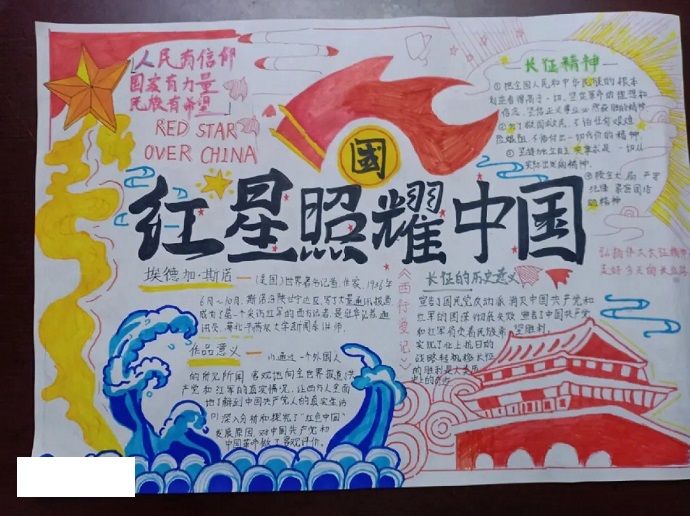 人民有信仰
国家有力量
民族有希望
RED STAR
OVER CHINA
國
长征精神
①把全国人民和中华民族的根本
利益看得高于一切，坚定革命的理想和
信念，坚信正义事业必然胜利的精神
②为了救国救民，不怕任何艰难
险阻，不惜付出一切牺牲的精神
③坚持独立自主实事求是，一切从
实际出发的精神
④顾全大局、严守
纪律、紧密团结
的精神
红星照耀中国
弘扬伟大长征精神
走好今天的长征路
埃德加·斯诺 — (美国)世界著名记者、作家，1936年
6月～10月，斯诺
成为了第一个采访红军的西方记者
《西行漫记》
长征的历史意义
宣告了国民党反动派消灭中国共产党和
红军的图谋彻底失败，宣告了中国共产党
和红军肩负着民族希望胜利
实现了北上抗日的
战略转移
作品意义 — ①通过一个外国人
的所见所闻，客观地向全世界报道了共
产党和红军的真实情况，让西方人全面
地了解到中国共产党人的真实生活
②深入分析和探究了“红色中国”
发展原因，对中国共产党和
中国革命做了客观评价。